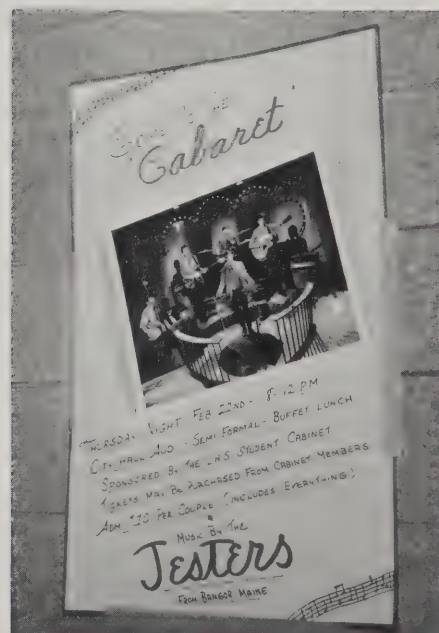 Come to the
Cabaret
THURSDAY NIGHT FEB 22ND - 8-12 PM
CITY HALL AUD - SEMI FORMAL - BUFFET LUNCH
SPONSORED BY THE STUDENT CABINET
TICKETS MAY BE PURCHASED FROM CABINET MEMBERS
ADM PER COUPLE (INCLUDES EVERYTHING)
MUSIC BY THE
JESTERS
FROM BANGOR MAINE